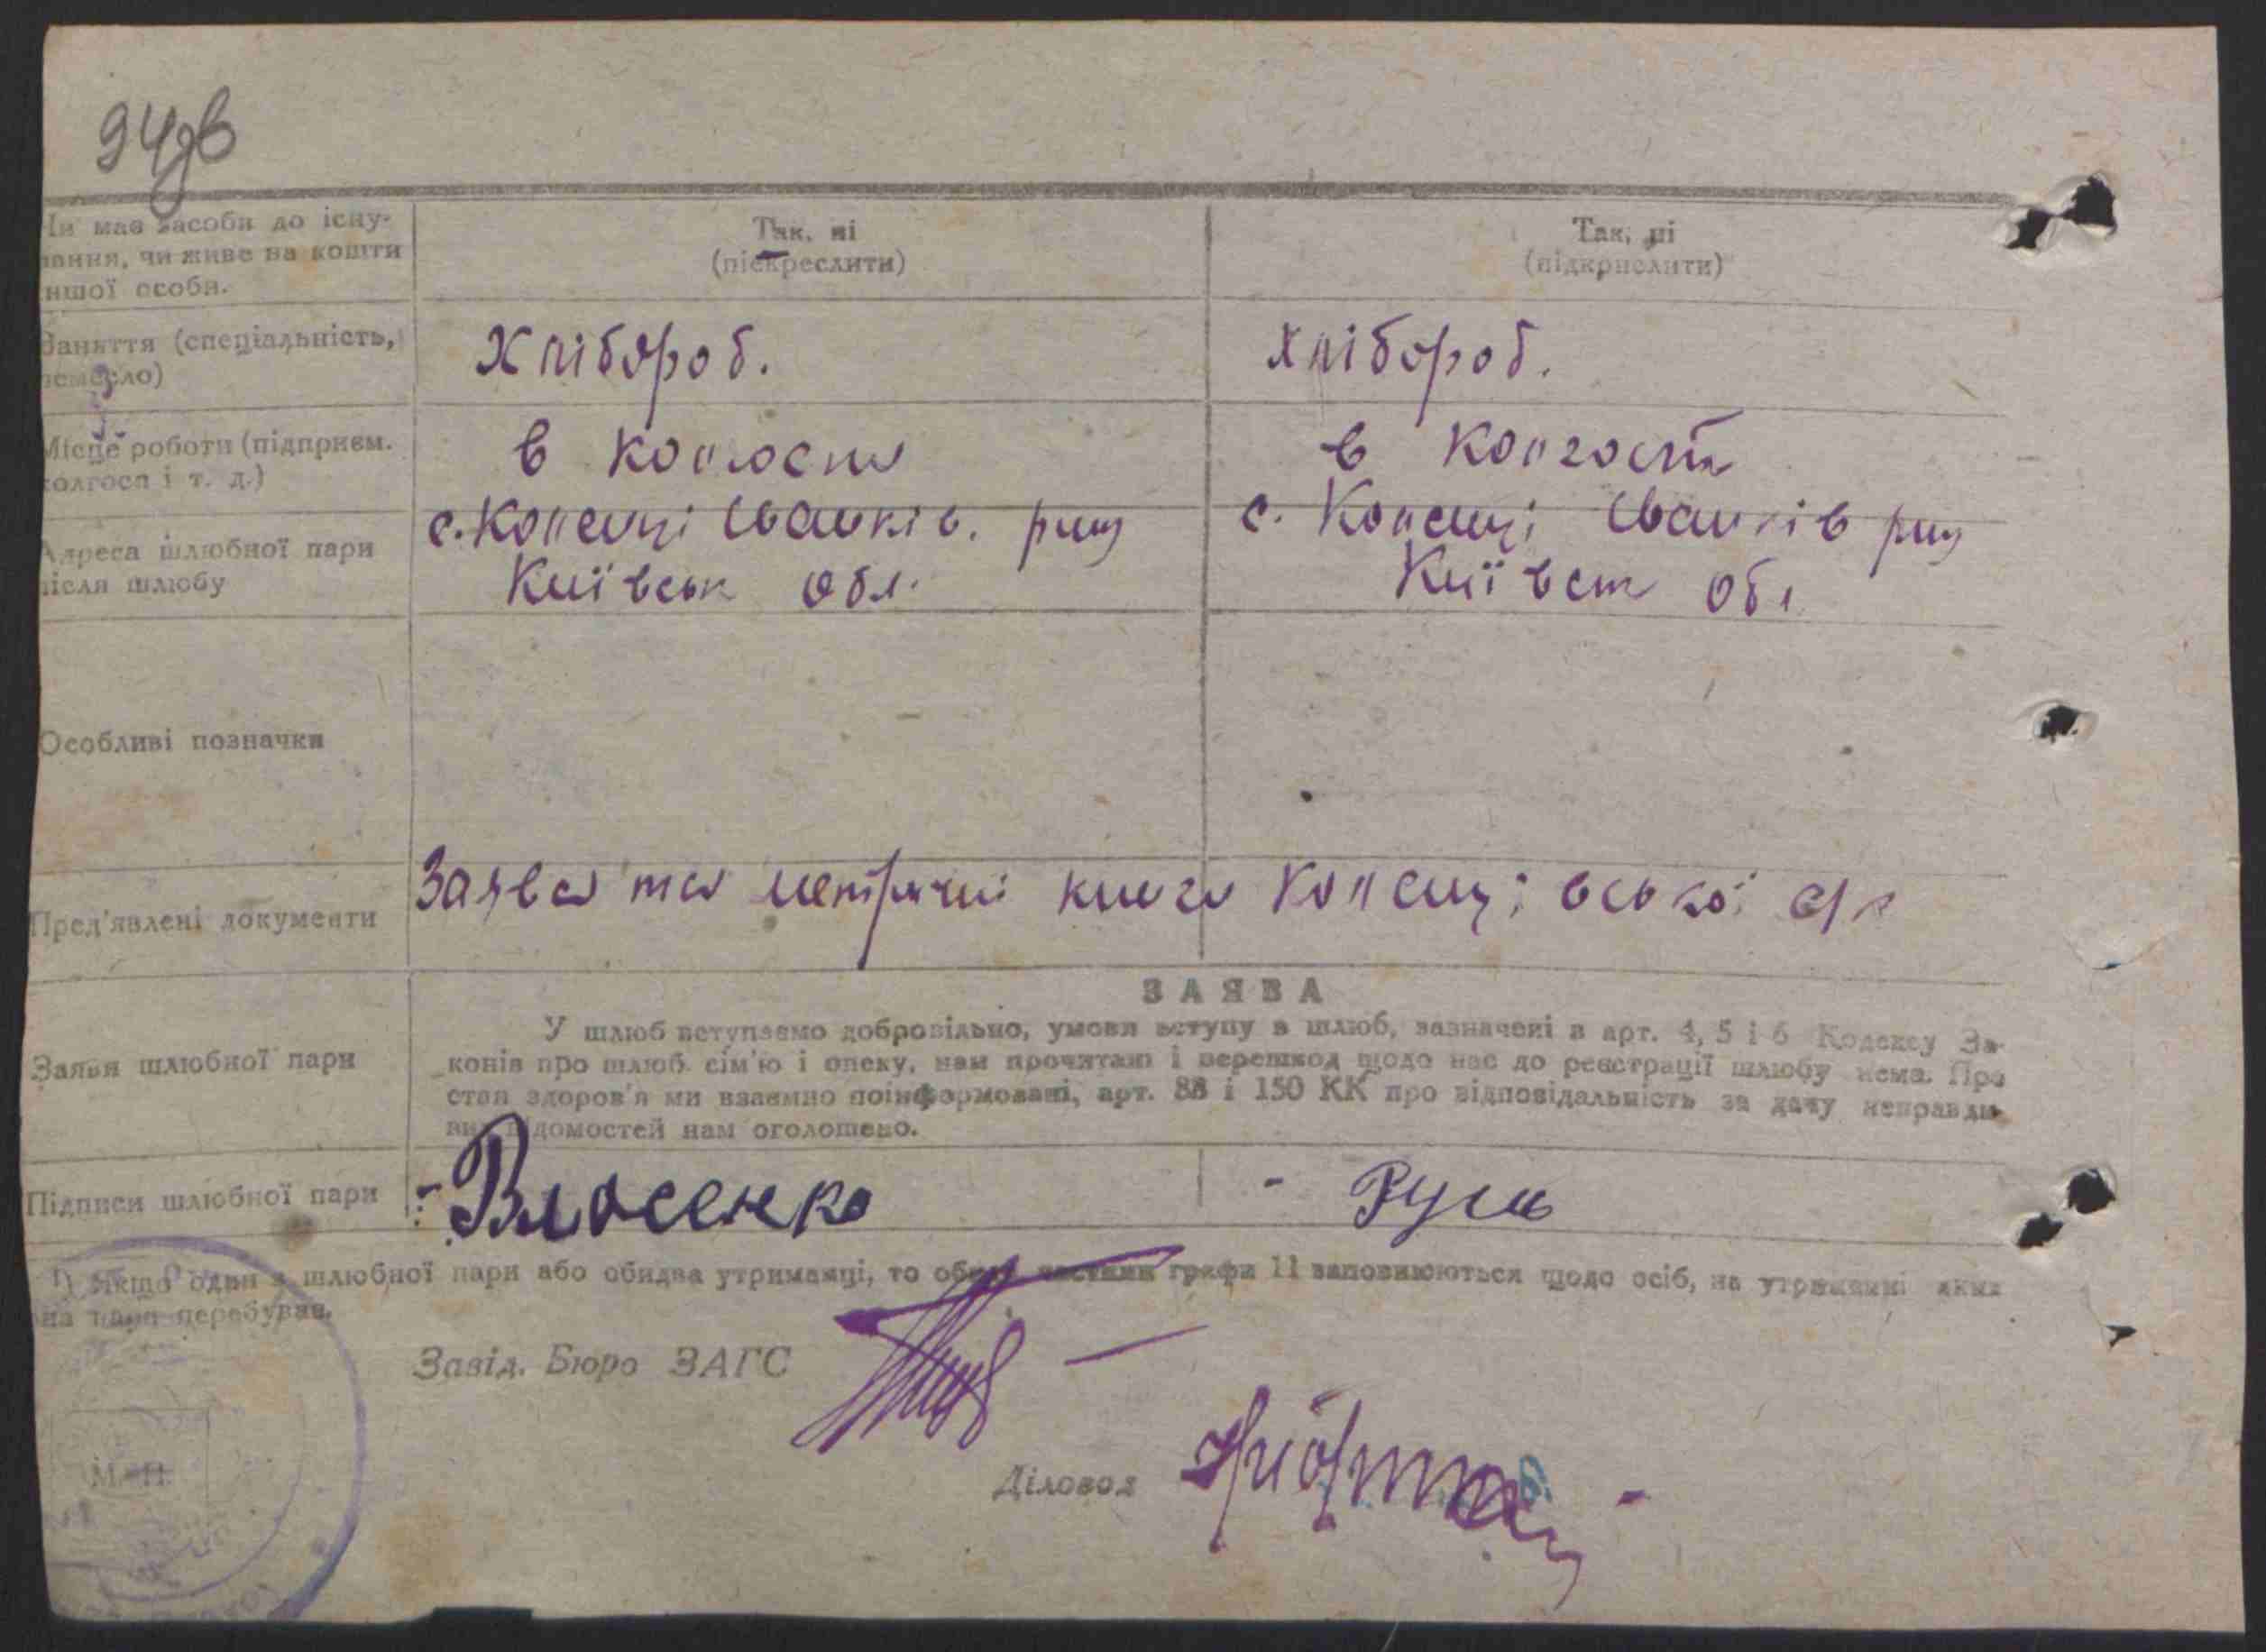 94зв
Чи має засоби до існу-
вання, чи живе на кошти
іншої особи.
Так, ні
(піскреслити)
Так, ні
(підкрислити)
Заняття (спеціальність,
ремесло)
Хлібороб.
Хлібороб.
Місце роботи (підприєм.
колгосп і т. д.)
в колгоспі
в колгоспі
Адреса шлюбної пари
після шлюбу
с. Копенці Іванків. р-ну
Київськ обл.
с. Копенці Іванків р-ну
Київськ обл
Особливі позначки
Пред'явлені документи
Заява та метричні книги с/р
Заява шлюбної пари
ЗАЯВА
У шлюб вступаємо добровільно, умови вступу в шлюб, зазначені в арт. 4, 5 і 6 Кодексу За-
конів про шлюб. сім'ю і опеку, нам прочитані і перешкод щодо нас до реєстрації шлюбу нема. Про
стан здоров'я ми взаємно поінформовані, арт. 88 і 150 КК про відповідальність за дачу неправди-
вих відомостей нам оголошено.
Підписи шлюбної пари
Власенко
Русь
1) Якщо один з шлюбної пари або обидва утриманці, то обидві частини графи 11 заповнюються щодо осіб, на утриманні яких
на пара перебуває.
Завід. Бюро ЗАГС
М. П.
Діловод